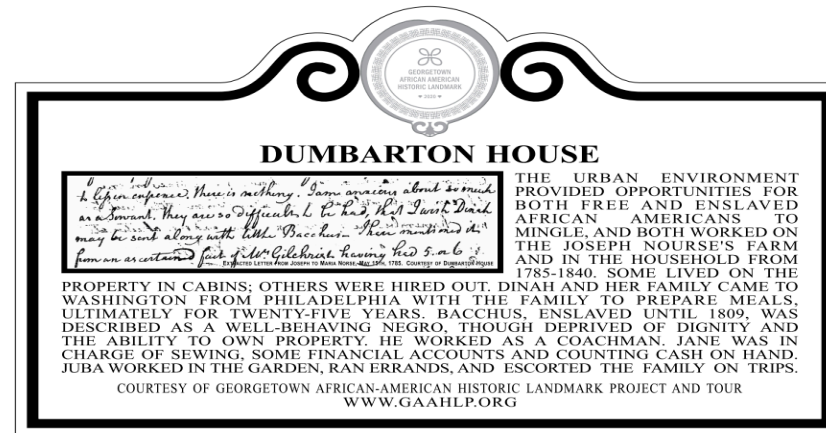 GEORGETOWN
AFRICAN AMERICAN
HISTORIC LANDMARK
2020
DUMBARTON HOUSE
to lessen expence, there is nothing I am anxious about so much
as a Servant, they are so difficult to be had, that I wish Dinah
may be sent along with little Bacchus. I have mentioned it
from an ascertained fact of Mr. Gilchrist having had 5 or 6
EXTRACTED LETTER FROM JOSEPH TO MARIA NORSE, MAY 15TH, 1785. COURTESY OF DUMBARTON HOUSE
THE URBAN ENVIRONMENT
PROVIDED OPPORTUNITIES FOR
BOTH FREE AND ENSLAVED
AFRICAN AMERICANS TO
MINGLE, AND BOTH WORKED ON
THE JOSEPH NOURSE'S FARM
AND IN THE HOUSEHOLD FROM
1785-1840. SOME LIVED ON THE
PROPERTY IN CABINS; OTHERS WERE HIRED OUT. DINAH AND HER FAMILY CAME TO
WASHINGTON FROM PHILADELPHIA WITH THE FAMILY TO PREPARE MEALS,
ULTIMATELY FOR TWENTY-FIVE YEARS. BACCHUS, ENSLAVED UNTIL 1809, WAS
DESCRIBED AS A WELL-BEHAVING NEGRO, THOUGH DEPRIVED OF DIGNITY AND
THE ABILITY TO OWN PROPERTY. HE WORKED AS A COACHMAN. JANE WAS IN
CHARGE OF SEWING, SOME FINANCIAL ACCOUNTS AND COUNTING CASH ON HAND.
JUBA WORKED IN THE GARDEN, RAN ERRANDS, AND ESCORTED THE FAMILY ON TRIPS.
COURTESY OF GEORGETOWN AFRICAN-AMERICAN HISTORIC LANDMARK PROJECT AND TOUR
WWW.GAAHLP.ORG